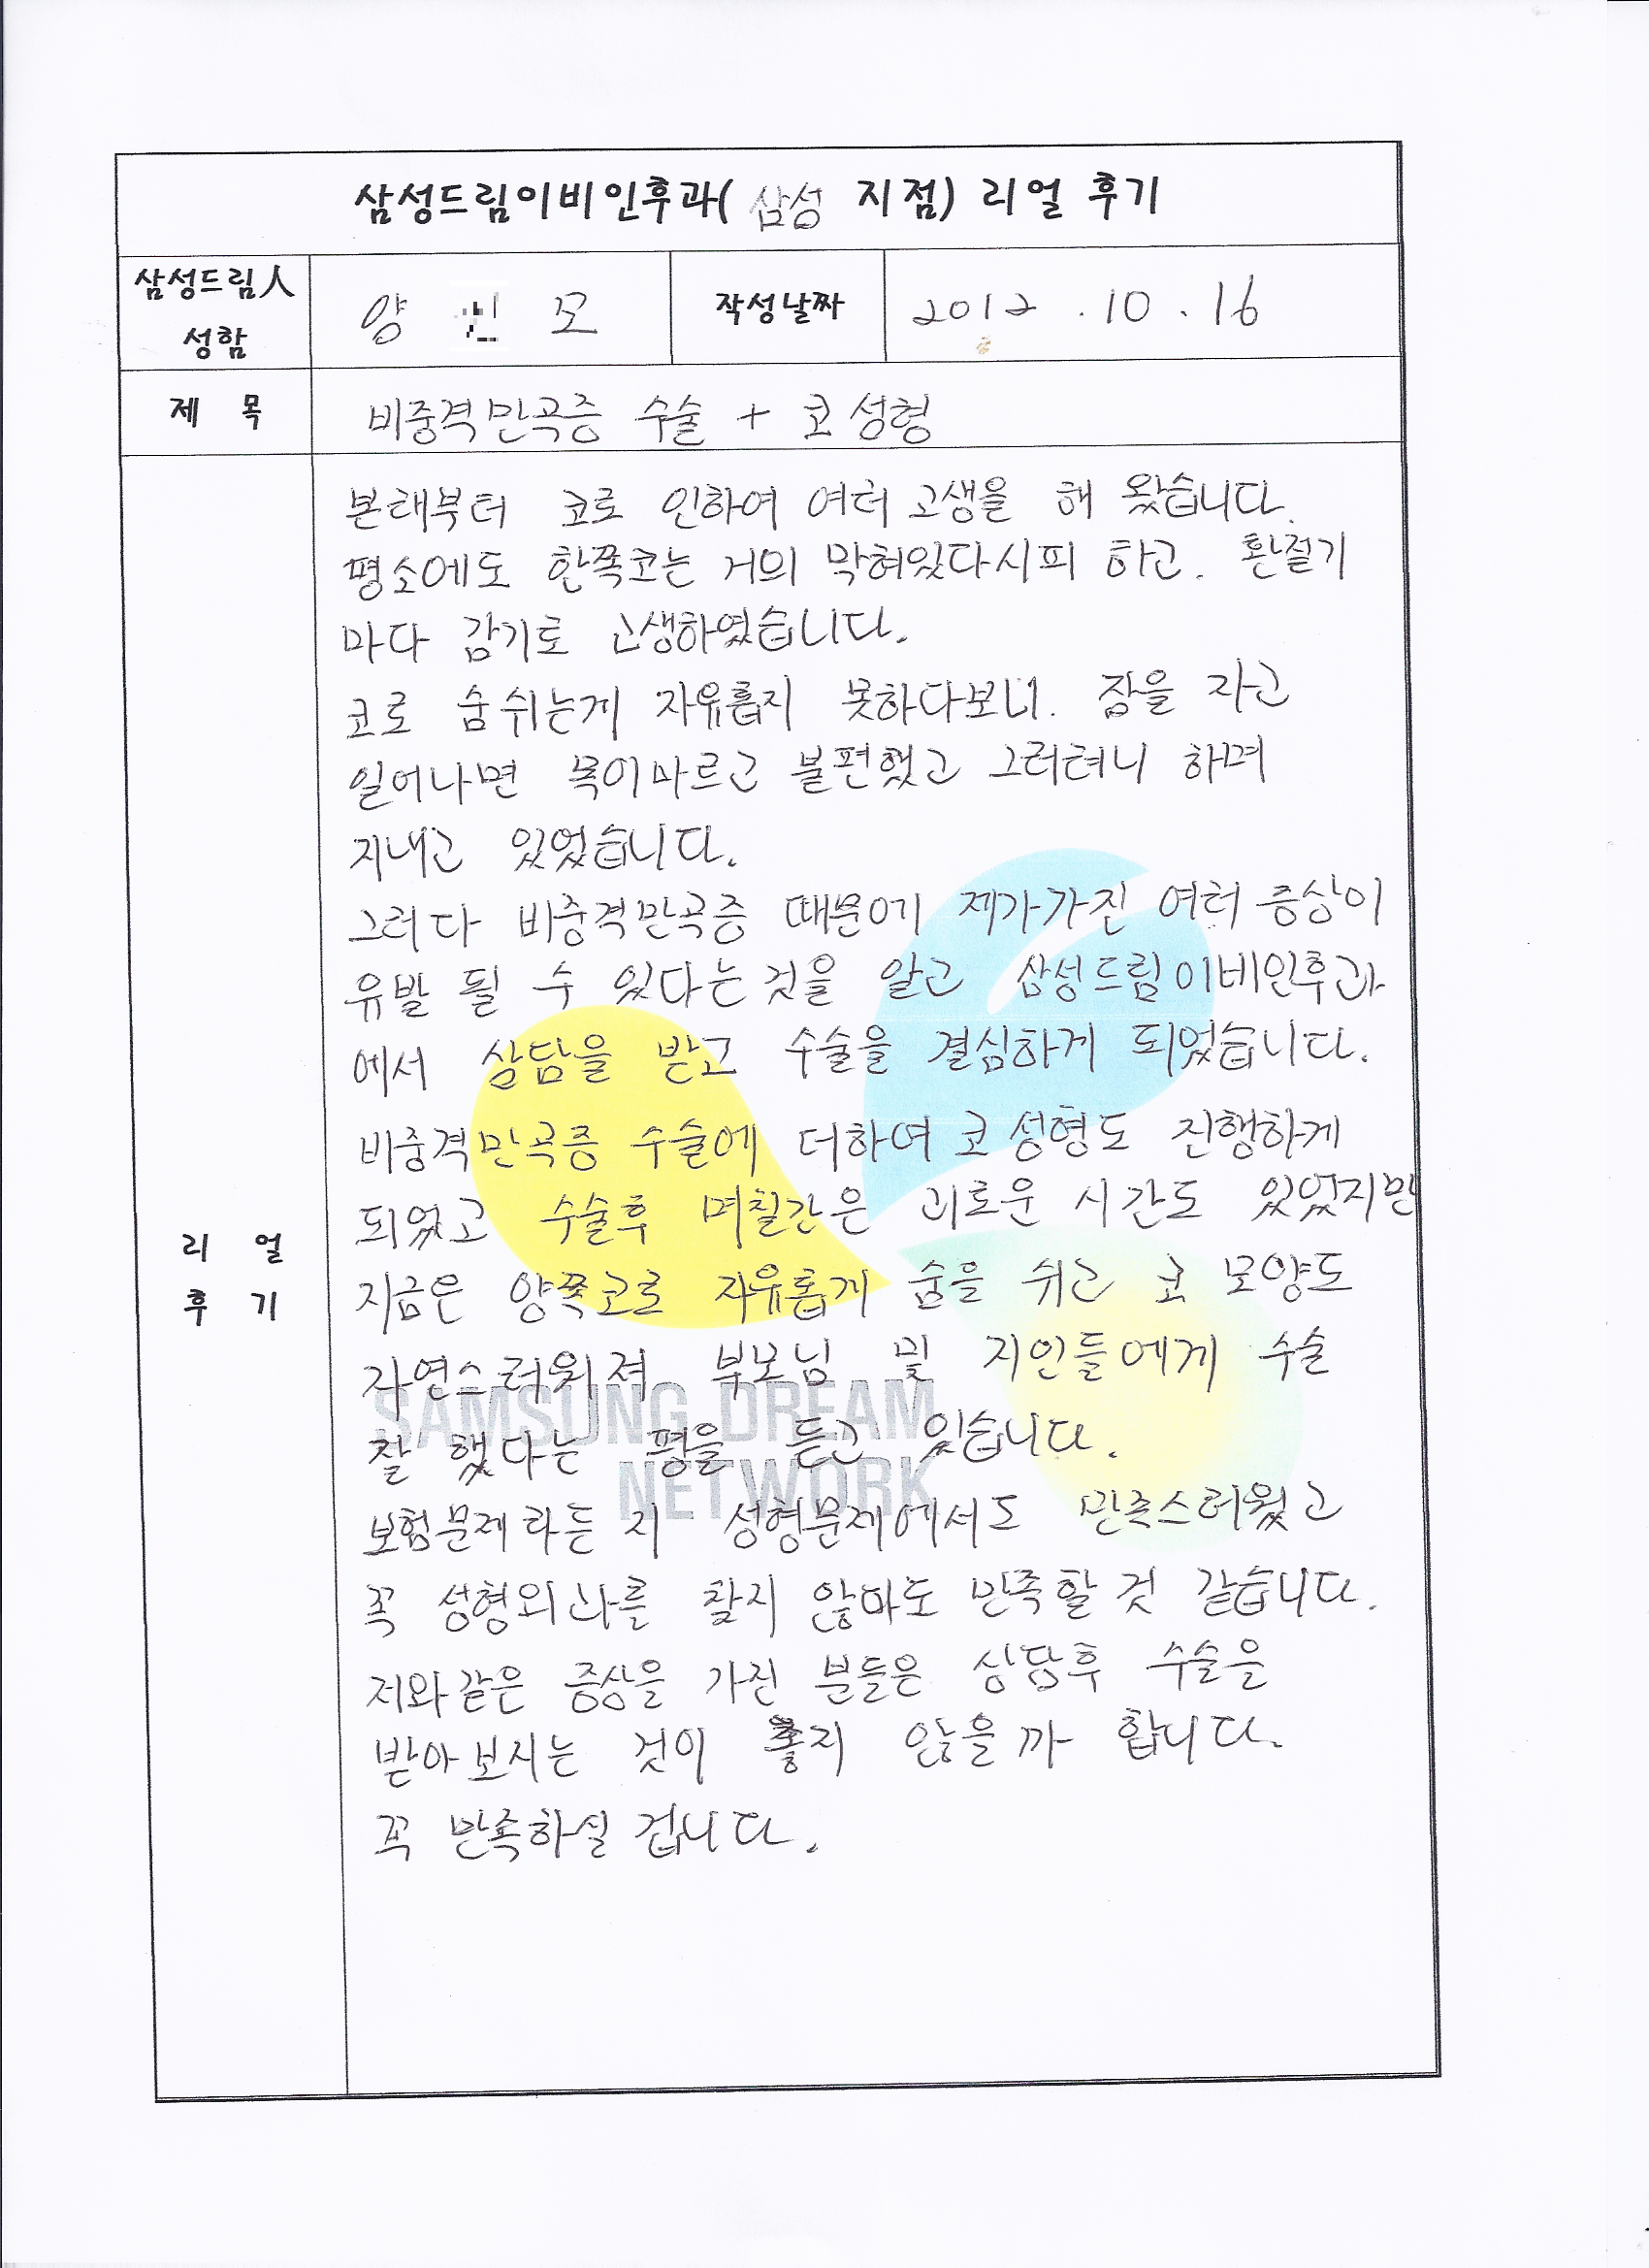 삼성드림이비인후과( 삼성 지점) 리얼 후기
삼성드림人
성함
양 모
작성날짜
2012 . 10 . 16
제 목
비중격만곡증 수술 + 코 성형
리 얼
후 기
본래부터 코로 인하여 여러 고생을 해 왔습니다.
평소에도 한쪽코는 거의 막혀있다시피 하고. 환절기
마다 감기로 고생하였습니다.
코로 숨쉬는게 자유롭지 못하다보니. 잠을 자고
일어나면 목이마르고 불편했고 그러려니 하며
지내고 있었습니다.
그러다 비중격만곡증 때문에 제가가진 여러 증상이
유발 될 수 있다는것을 알고 삼성드림이비인후과
에서 상담을 받고 수술을 결심하게 되었습니다.
비중격만곡증 수술에 더하여 코 성형도 진행하게
되었고 수술후 며칠간은 괴로운 시간도 있었지만
지금은 양쪽코로 자유롭게 숨을 쉬고 코 모양도
자연스러워져 부모님 및 지인들에게 수술
잘 했다는 평을 듣고 있습니다.
보험문제라든지 성형문제에서도 만족스러웠고
꼭 성형외과를 찾지 않아도 만족할 것 같습니다.
저와같은 증상을 가진 분들은 상담후 수술을
받아보시는 것이 좋지 않을까 합니다.
꼭 만족하실 겁니다.
SAMSUNG DREAM
NETWORK